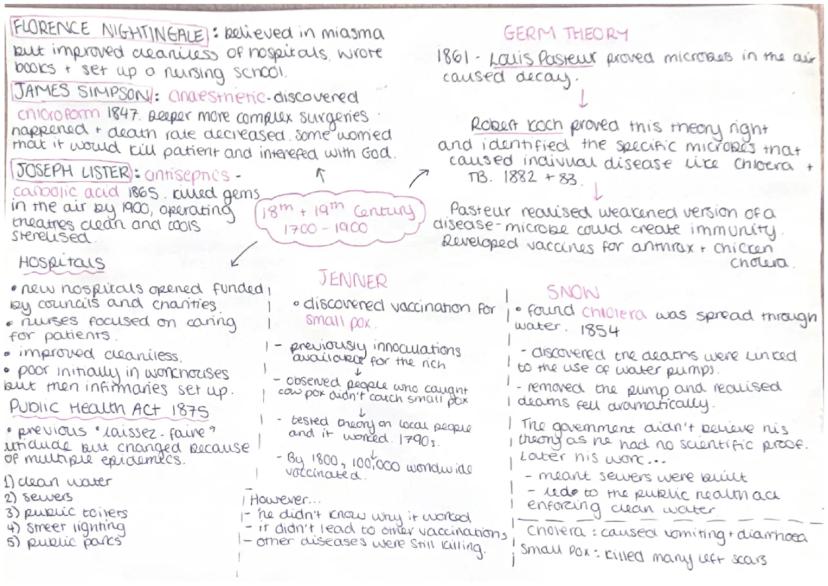 FLORENCE NIGHTINGALE : believed in miasma
but improved cleaniless of hospitals. wrote
books + set up a nursing school.
JAMES SIMPSON : anaesthetic - discovered
chloroform 1847. Deeper more complex surgeries
happened + death rate decreased. Some worried
that it would kill patient and interefed with God.
JOSEPH LISTER : antiseptics -
carbolic acid 1865. killed gems
in the air by 1900, operating
theatres clean and tools
sterelised.
18th + 19th Century
1700 - 1900
GERM THEORY
1861 - Louis Pasteur proved microbes in the air
caused decay.
Robert Koch proved this theory right
and identified the specific microbes that
caused indivual disease like cholera +
TB. 1882 + 83.
Pasteur realised weakened version of a
disease-microbe could create immunity.
Developed vaccines for anthrax + chicken
cholera.
HOSPITALS
• new hospitals opened funded
by councils and charities.
• nurses focused on caring
for patients.
• improved cleaniless.
• poor initially in workhouses
but then infirmaries set up.
PUBLIC HEALTH ACT 1875
• previous "laissez-faire"
but changed because
of multiple epidemics.
1) clean water
2) sewers
3) public toilets
4) street lighting
5) public parks
JENNER
• discovered vaccination for
small pox.
- previously innoculations
available for the rich
- observed people who caught
cow pox didn't catch small pox
- tested theory on local people
and it worked. 1790s.
- By 1800, 100,000 worldwide
vaccinated.
However...
- he didn't know why it worked
- it didn't lead to other vaccinations
- other diseases were still killing.
SNOW
• found cholera was spread through
water. 1854
- discovered the deaths were linked
to the use of water pumps.
- removed the pump and realised
deaths fell dramatically.
The government didn't believe his
theory as he had no scientific proof.
Later his work...
- meant sewers were built
- to the public health act
enforcing clean water
cholera : caused vomiting + diarrhoea
small pox : killed many left scars